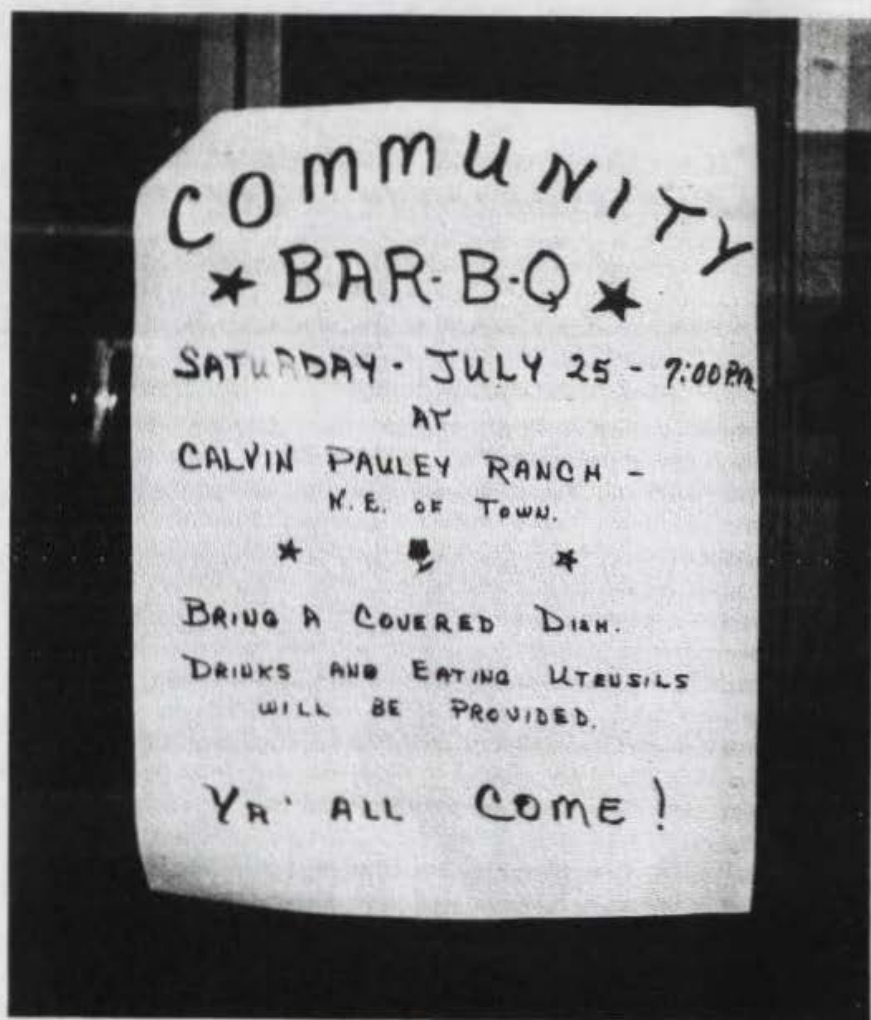 COMMUNITY
★ BAR-B-Q ★
SATURDAY - JULY 25 - 7:00 P.M.
AT
CALVIN PAULEY RANCH -
N.E. OF TOWN.
BRING A COVERED DISH.
DRINKS AND EATING UTENSILS
WILL BE PROVIDED.
YA' ALL COME!